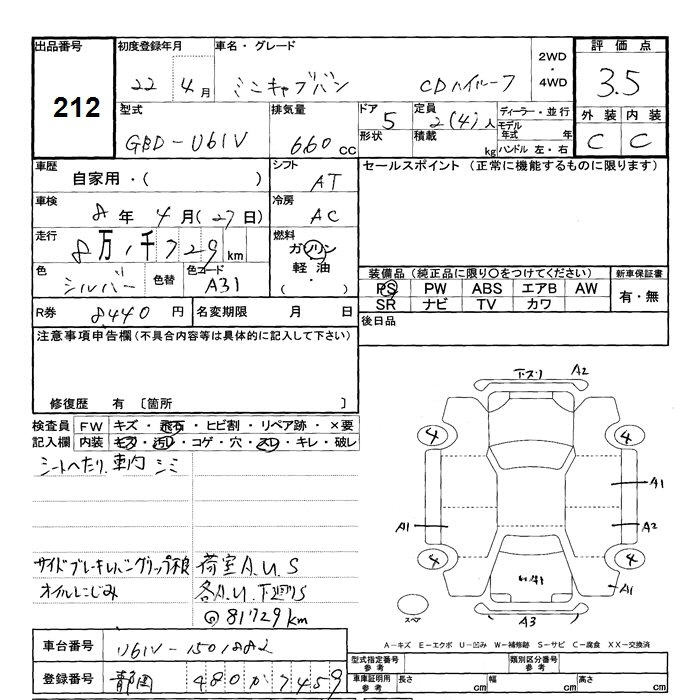 出品番号 初度登録年月 車名・グレード 評価点
212 22 4月 ミニキャブバン CDハイルーフ 2WD・4WD 3.5
型式 排気量 ドア 定員 ディーラー・並行 外装 内装
GBD-U61V 660cc 5 2(4)人 モデル年式 年 C C
形状 積載 kg ハンドル 左・右
車歴 シフト セールスポイント (正常に機能するものに限ります)
自家用・( ) AT
車検 冷房
8年 4月(27日) AC
走行 燃料
8万1千729km ガソリン
色 色替 色コード 軽油
シルバー A31 ( ・ )
装備品 (純正品に限り○をつけてください) 新車保証書
PS PW ABS エアB AW 有・無
SR ナビ TV カワ
R券 8440円 名変期限 月 日 後日品
注意事項申告欄(不具合内容等は具体的に記入して下さい)
修復歴 有 〔箇所 〕
検査員 FW キズ・飛石・ヒビ割・リペア跡・×要
記入欄 内装 キズ・汚レ・コゲ・穴・スレ・キレ・破レ
シートへたり、車内シミ
サイドブレーキレバーグリップ欠
荷室A.U.S
オイルにじみ 各A.U 下廻りS
81729km
下スリ A2
4 4
A1
A1 A2
4 4
W.A1 A1
スペア A3
A-キズ E-エクボ U-凹み W-補修跡 S-サビ C-腐食 XX-交換済
車台番号 U61V-1501882
登録番号 静岡 480か7459
型式指定番号 参考 類別区分番号 参考
車庫証明用 参考 長さ cm 幅 cm 高さ cm